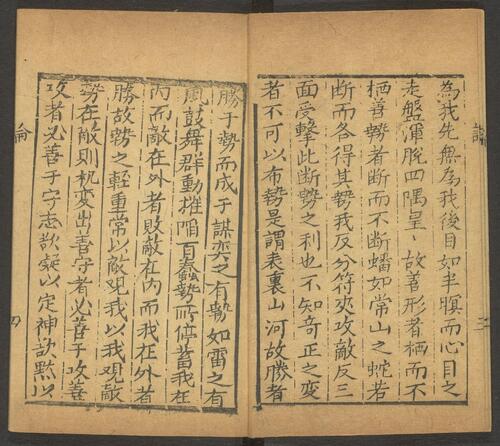 為我先無為我後目如半瞑而心目之
走盤渾脫四隅呈、故善形者栖而不
栖善勢者断而不断蟠如常山之蛇若
断而各得其勢我反分符夾攻敵反三
面受擊此断勢之利也不知竒正之变
者不可以布勢是謂表裏山河故勝者
三
勝于勢而成于謀奕之有勢如雷之有
風鼓舞群動摧陷百蠡勢所停蓄我在
内而敵在外者敗敵在内而我在外者
勝故勢之輕重常以敵觀我以我观敵
勢在敵則机变出善守者必善于攻善
攻者必善于守志欲凝以定神欲黙以
論
四